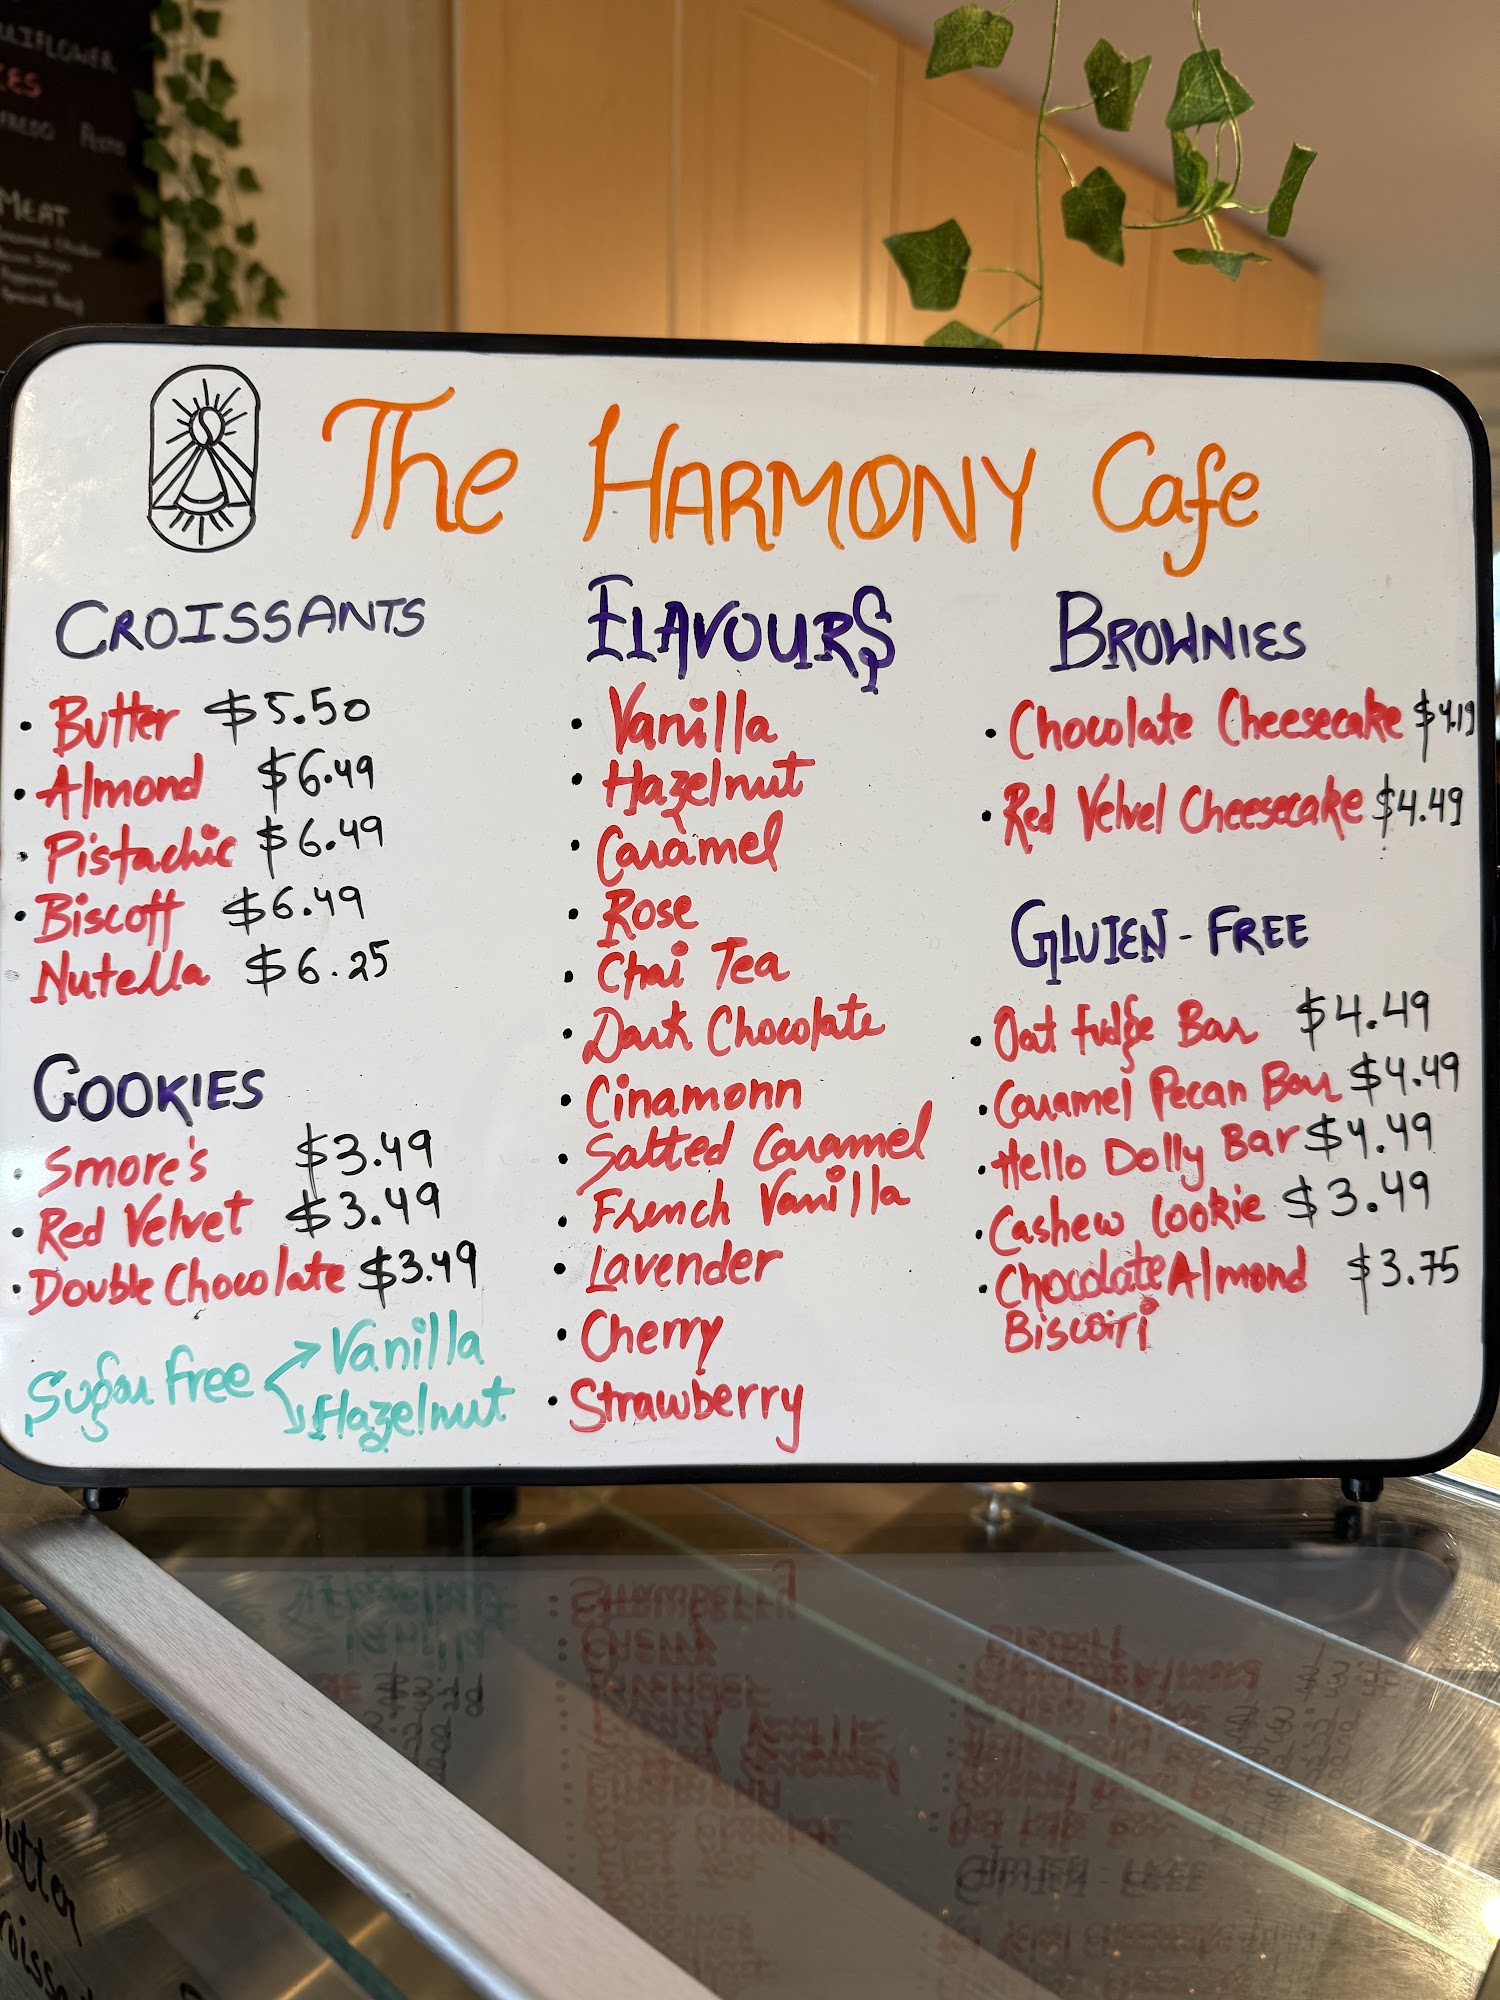 MEAT
The HARMONY Cafe
CROISSANTS
• Butter $5.50
• Almond $6.49
• Pistachio $6.49
• Biscoff $6.49
Nutella $6.25
COOKIES
• Smore's $3.49
• Red Velvet $3.49
• Double Chocolate $3.49
Sugar free → Vanilla
→ Hazelnut
FLAVOURS
• Vanilla
• Hazelnut
• Caramel
• Rose
• Chai Tea
• Dark Chocolate
• Cinamonn
• Salted Caramel
• French Vanilla
• Lavender
• Cherry
• Strawberry
BROWNIES
• Chocolate Cheesecake $4.19
• Red Velvet Cheesecake $4.49
GLUTEN-FREE
• Oat fudge Bar $4.49
• Caramel Pecan Bar $4.49
• Hello Dolly Bar $4.49
• Cashew Cookie $3.49
• Chocolate Almond $3.75
Biscotti